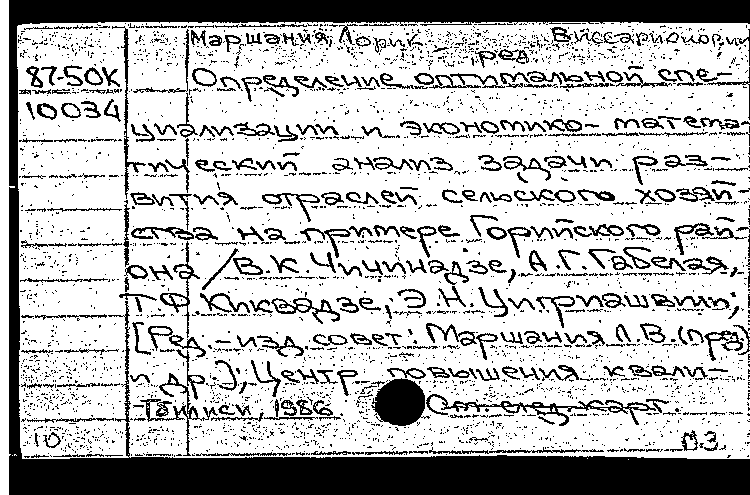 Маршания, Лорик Виссарионович
ред.
87-50К Определение оптимальной спе-
10034
циализации и экономико-матема-
тический анализ задачи раз-
вития отраслей сельского хозяй-
ства на примере Горийского рай-
она / В.К Чичинадзе, А.Г. Габелая,
Т.Ф. Киквадзе, Э.Н. Цигриашвили;
[Ред.-изд. совет: Маршания Л.В. (пред)
и др.]; Центр повышения квали-
Тбилиси, 1986. См. след. карт.
10 М.З.